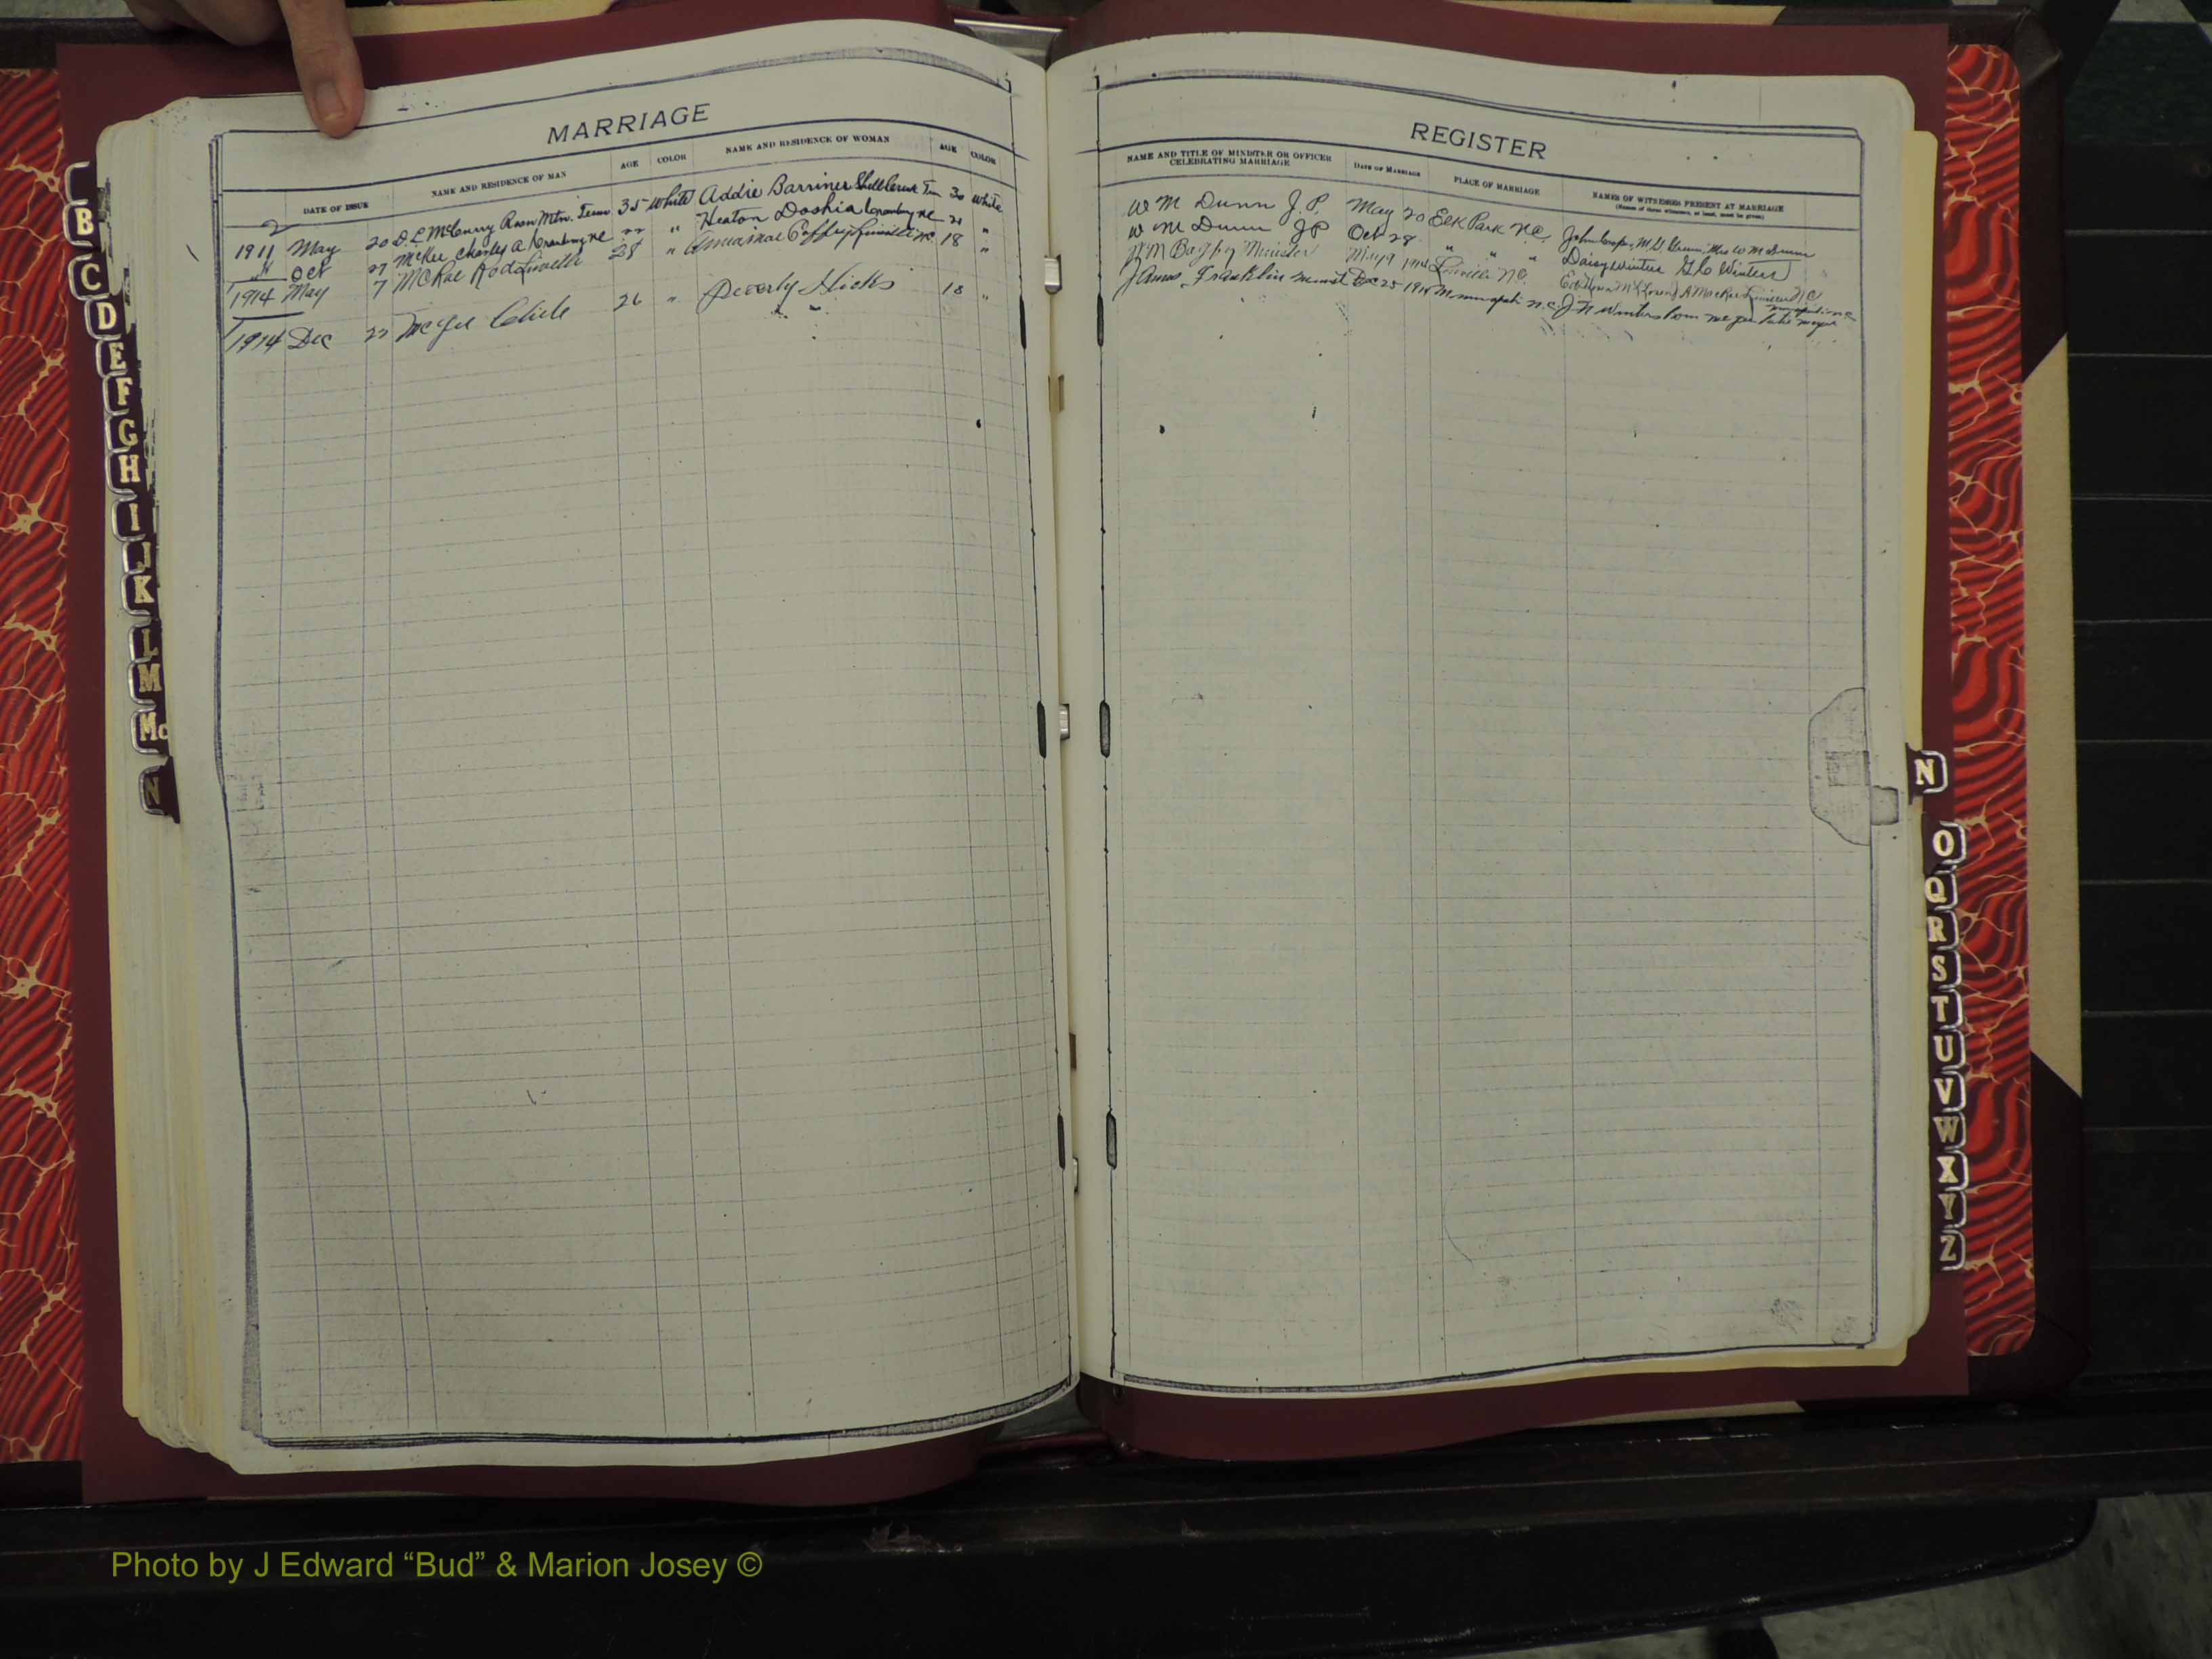 MARRIAGE
DATE OF ISSUE NAME AND RESIDENCE OF MAN AGE COLOR NAME AND RESIDENCE OF WOMAN AGE COLOR
2
1911 May 20 D. C. McCurry Roan Mtn. Tenn 35 White Addie Barriner Shell Creek Tenn 30 White
" Oct 27 McKee Charley A Cranberry NC 22 " Heaton Doshia Cranberry NC 21 "
1914 May 7 McRae Linville 28 " Coffey Linville NC 18 "
1914 Dec 22 McGee 26 " Hicks 18 "
REGISTER
NAME AND TITLE OF MINISTER OR OFFICER CELEBRATING MARRIAGE DATE OF MARRIAGE PLACE OF MARRIAGE NAMES OF WITNESSES PRESENT AT MARRIAGE
(Names of three witnesses, at least, must be given)
W M Dunn J. P. May 20 Elk Park N.C. Mrs W M Dunn
W M Dunn J P Oct 28 " " " Daisy Winters
Minister May 9 1914 Linville N.C. Linville N C
James Franklin Dec 25 1914 N.C. J N Winters
B
C
D
E
F
G
H
I
J
K
L
M
Mc
N
N
O
Q
R
S
T
U
V
W
X
Y
Z
Photo by J Edward “Bud” & Marion Josey ©